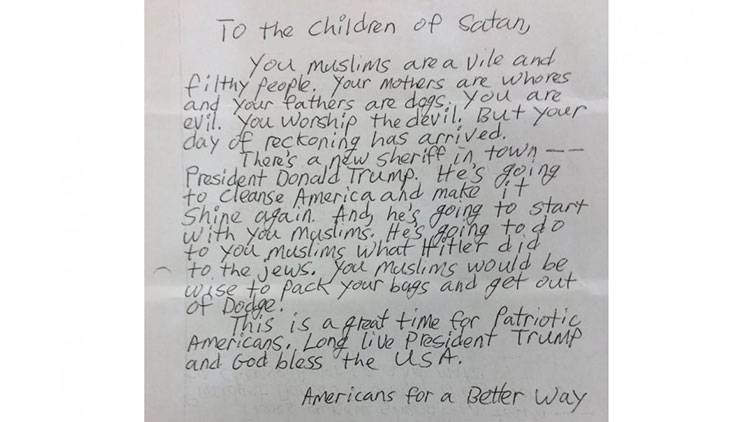 To the Children of Satan,
You muslims are a vile and
filthy people. Your mothers are whores
and your fathers are dogs. You are
evil. You worship the devil. But your
day of reckoning has arrived.
There's a new sheriff in town --
President Donald Trump. He's going
to cleanse America and make it
shine again. And, he's going to start
with you muslims. He's going to do
to you muslims what Hitler did
to the jews. You muslims would be
wise to pack your bags and get out
of Dodge.
This is a great time for Patriotic
Americans. Long live President Trump
and God bless the USA.
Americans for a Better Way